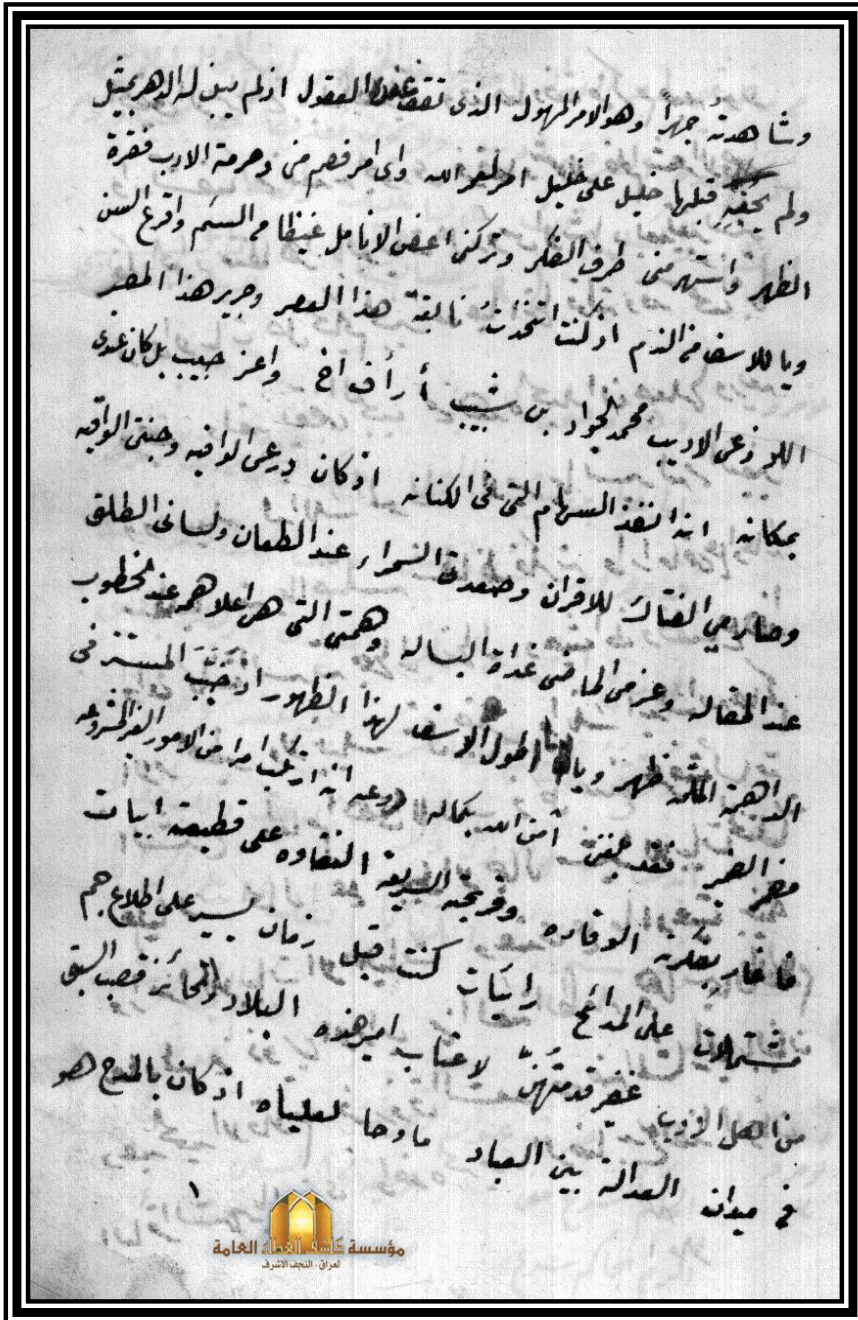 وشاهدته جهرا وهو الامر المهول الذى تقف العقول اذ لم يبن له الدهر بمثيل
ولم يجفه قبلها خليل على خليل امر لعمر الله واى امر فصم منى وحرمة الادب فقرة
الظهر واستهر منى طرف الفكر وتركنى اعض الانامل غيظا من السئم واقرع السن
ويا للاسف من الندم اذ كنت اتخذت نابغة هذا العصر وجرير هذا المصر
اللوذعى الاديب محمد الجواد بن شبيب أرأف اخ واعز حبيب بل كان عندى
بمكانه انه انفذ السهام التى فى الكنانه اذ كان درعى الواقيه وجنتى الواقيه
وصارمي الفتاك للاقران وصعدتى السمراء عند الطعان ولسانى الطلق
عند المقاله وعزمى الماضى غداة البساله وهمتى التى هى اعلا همه عند الخطوب
الداهية الملمة ظهر ويا اطول الاسف لهذا الظهور اذ خب المستتر فى
مضمر الضمير فقد بلغنى آمن الله بكماله روعه انه ارتكب امرا من الامور الغير المشروعه
فاغار بفكرته الوقاده وقريحته السريعة النقاده على قطيعة ابيات
مشتملات على المدائح رائيات كنت قبل زمان يسير على اطلاع جم
من اهل الادب غفير قدمتهن لاعتاب امير هذه البلاد والحائز قصب السبق
فى ميدان العدالة بين العباد مادحا لعلياه اذ كان بالمدح هو
١
مؤسسة كاشف الغطاء العامة
العراق - النجف الاشرف